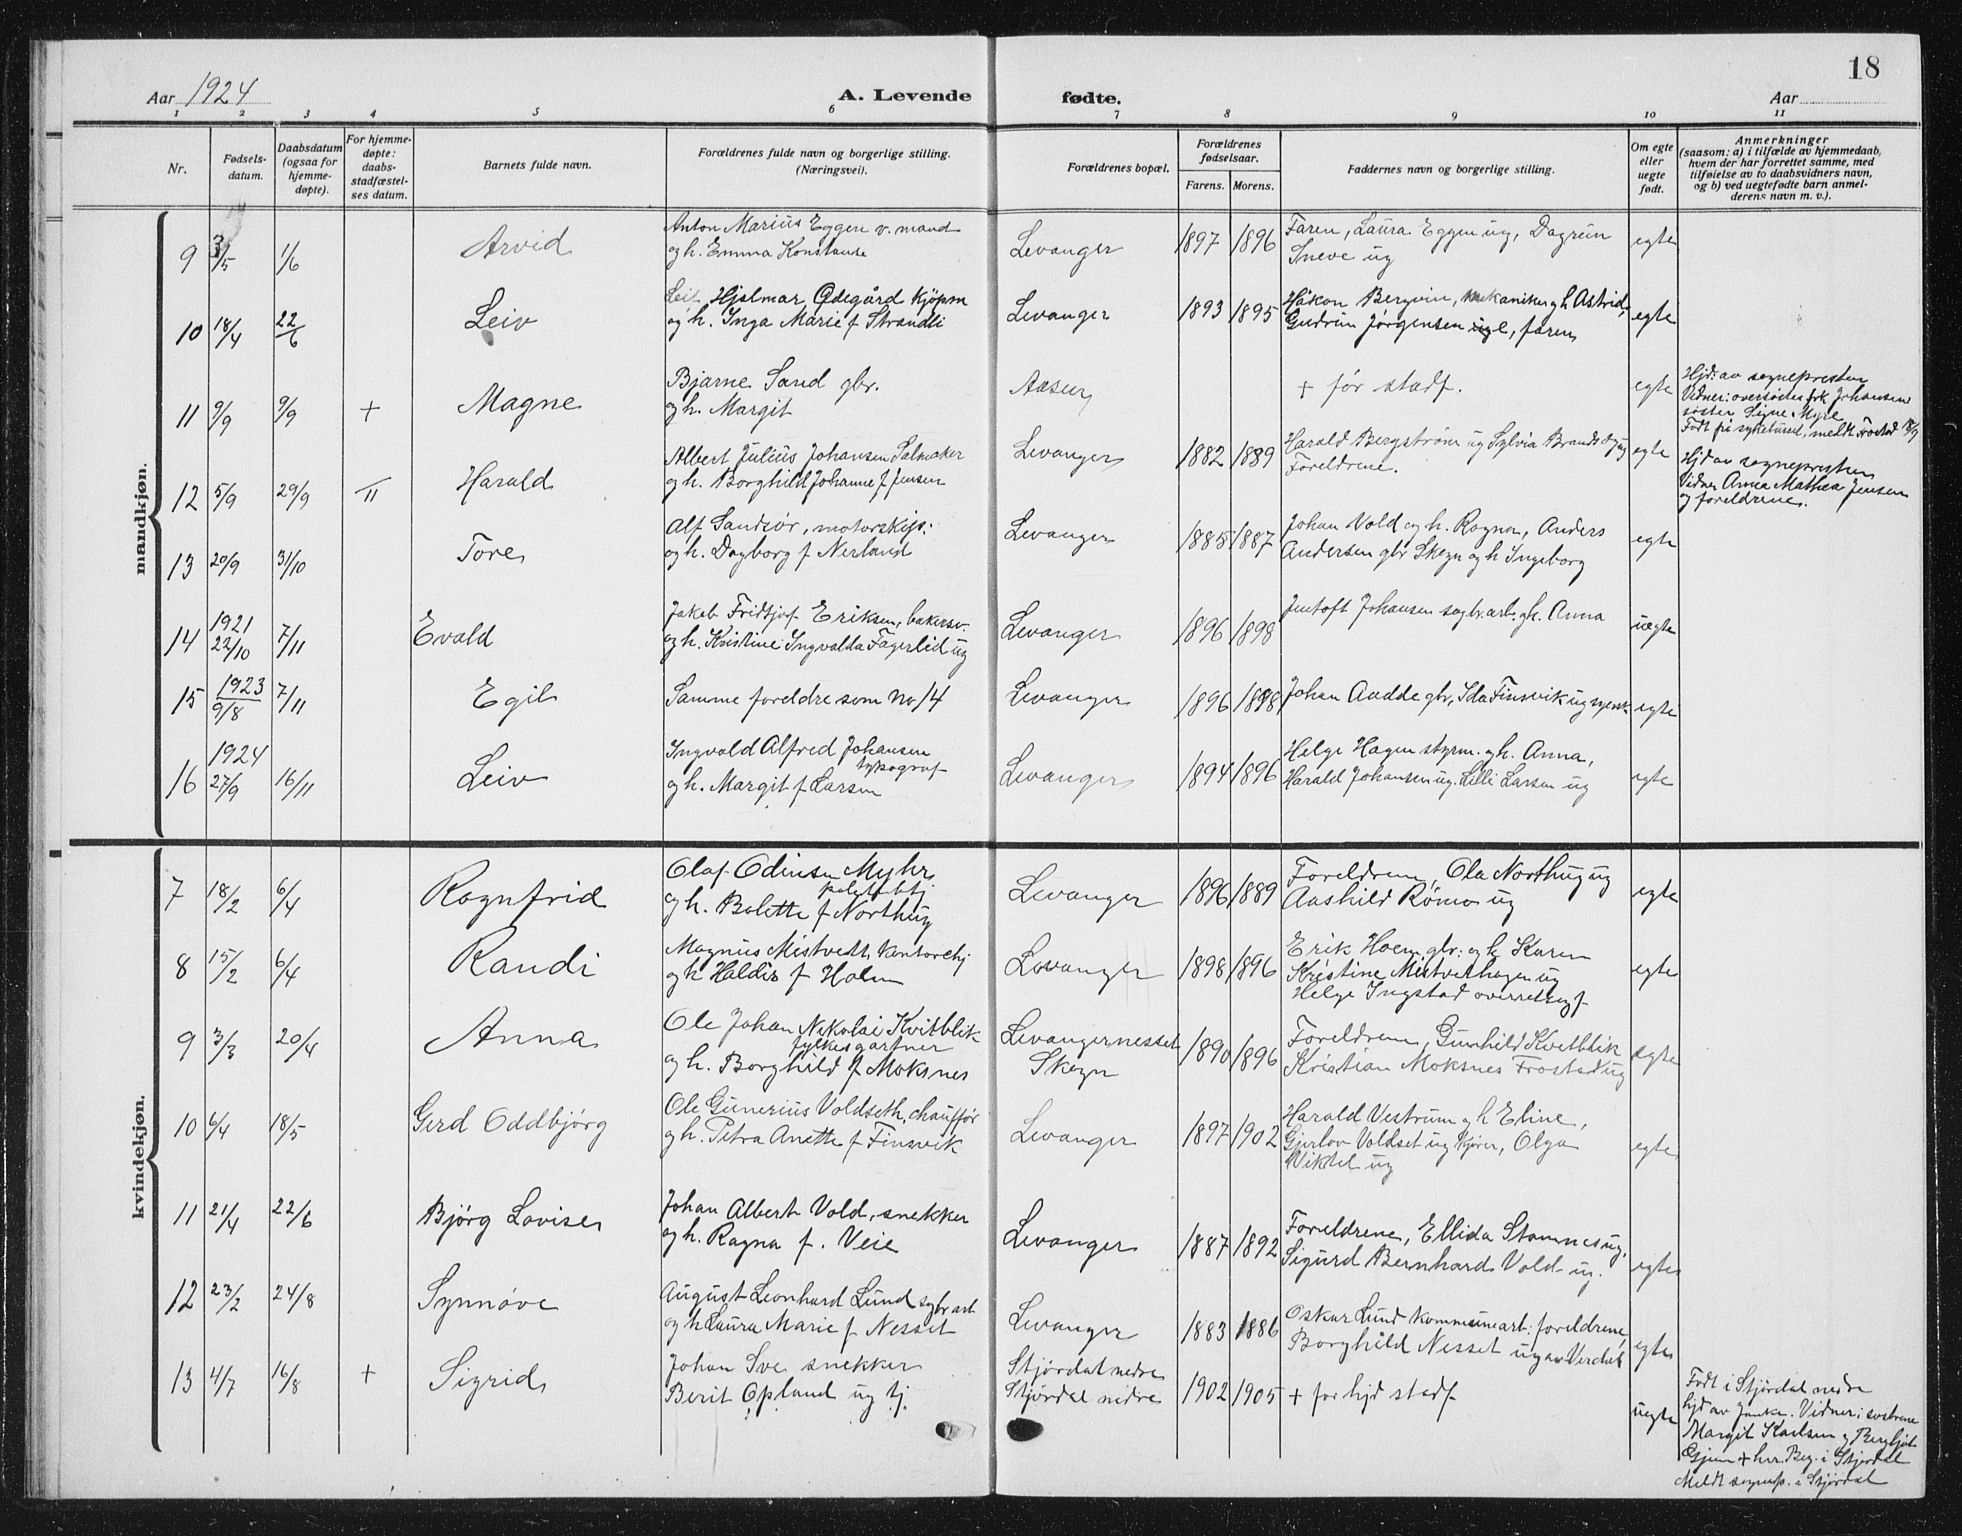 18
Aar 1924
A. Levende fødte.
Aar
1 2 3 4 5 6 7 8 9 10 11
Nr.
Fødsels-
datum.
Daabsdatum
(ogsaa for
hjemme-
døpte).
For hjemme-
døpte:
daabs-
stadfæstel-
ses datum.
Barnets fulde navn.
Forældrenes fulde navn og borgerlige stilling.
(Næringsvei).
Forældrenes bopæl.
Forældrenes
fødselsaar.
Farens. Morens.
Faddernes navn og borgerlige stilling.
Om egte
eller
uegte
født.
Anmerkninger
(saasom: a) i tilfælde av hjemmedaab,
hvem der har forrettet samme, med
tilføielse av to daabsvidners navn,
og b) ved uegtefødte barn anmel-
derens navn m. v.).
mandkjøn.
9 3/5 1/6 Arvid
Anton Marius Eggen v. mand
og h. Emma Konstanse
Levanger 1897 1896
Faren, Laura Eggen ug, Dagrun
Sneve ug
egte
10 18/4 22/6 Leiv
Leif Hjalmar Ødegård Kjöpm
og h. Inga Marie f Strandli
Levanger 1893 1895
Håkon Bergvin, mekaniker og h Astrid,
Gudrun Jørgensen, faren
egte
11 9/9 9/9 + Magne
Bjarne Sand gbr.
og h. Margit
Aasen
+ før stadf.
egte
Hjd: av sognepresten
Vidner: oversøster frk Johansen
søster Signe Myre
Født på sykehuset, meldt Frostad
12 5/9 29/9 Harald
Albert Julius Johansen Salmaker
og h. Borghild Johanne f Jensen
Levanger 1882 1889
Harald Bergstrøm ug Sylvia ug
Foreldrene.
egte
Hjd av sognepresten
Vidner Anna Mathea Jensen
og foreldrene.
13 20/9 31/10 Tore
Alf Sandsör, motorskip:
og h. Dagborg f Nerland
Levanger 1885 1887
Johan Vold og h. Ragna, Anders
Andersen gbr Skogn og h Ingeborg
egte
14 1921
22/10 7/11 Evald
Jakob Fridtjof Eriksen, bakersv.
og h. Kristine Ingvalda Fagerlid ug
Levanger 1896 1898
Jentoft Johansen sagbr.arb. og h. Anna
uegte
15 1923
9/8 7/11 Egil
Samme foreldre som No 14
Levanger 1896 1898
Johan Aadde gbr, Ida Finsvik ug
egte
16 1924
27/9 16/11 Leiv
Ingvald Alfred Johansen
typograf
og h. Margit f Larsen
Levanger 1894 1896
Helge Hagen styrm. og h. Anna,
Harald Johansen ug. Lilli Larsen ug
egte
kvindekjøn.
7 18/2 6/4 Ragnfrid
Olaf Odinsen Myhr
politibtj.
og h. Bolette f Northug
Levanger 1896 1889
Foreldrene, Ola Northug ug
Aashild Rømo ug
egte
8 15/2 6/4 Randi
Magnus Mistvedt, Kontorchj
og h Haldis f Holm
Levanger 1898 1896
Erik Hoem gbr. og h Karen
Kristine Mistvethagen ug
Helge Ingstad overretssgf
egte
9 3/3 20/4 Anna
Ole Johan Nikolai Kvitblik
fylkesgartner
og h. Borghild f Moksnes
Levangernesset
Skogn
1890 1896
Foreldrene, Gunhild Kvitblik
Kristian Moksnes Frosta ug
egte
10 6/4 18/5 Gerd Oddbjørg
Ole Gunerius Voldseth, chauffør
og h. Petra Anette f Finsvik
Levanger 1897 1902
Harald Vestrum og h Eline,
Gjerlov Voldset ug kjører, Olga
Viktel ug
egte
11 21/4 22/6 Bjørg Lovise
Johan Albert Vold, snekker
og h. Ragna f. Veie
Levanger 1887 1892
Foreldrene, Ellida Stamnes ug,
Sigurd Bernhard Vold ug.
egte
12 23/2 24/8 Synnøve
August Leonhard Lund sgbr arb
og h Laura Marie f Nesset
Levanger 1883 1886
Oskar Lund Kommunearb. foreldrene,
Borghild Nesset ug av Verdal
egte
13 4/7 16/8 + Sigrid
Johan Sve snekker
Berit Opland ug tj.
Stjørdal nedre
Stjørdal nedre
1902 1905
+ for hjd stadf
uegte
Født i Stjørdal nedre
hjd av Vidner: søstrene
Margit Karlsen og Bergljot
Gjem + her. Beg. i Stjørdal
Meldt sognep. i Stjørdal